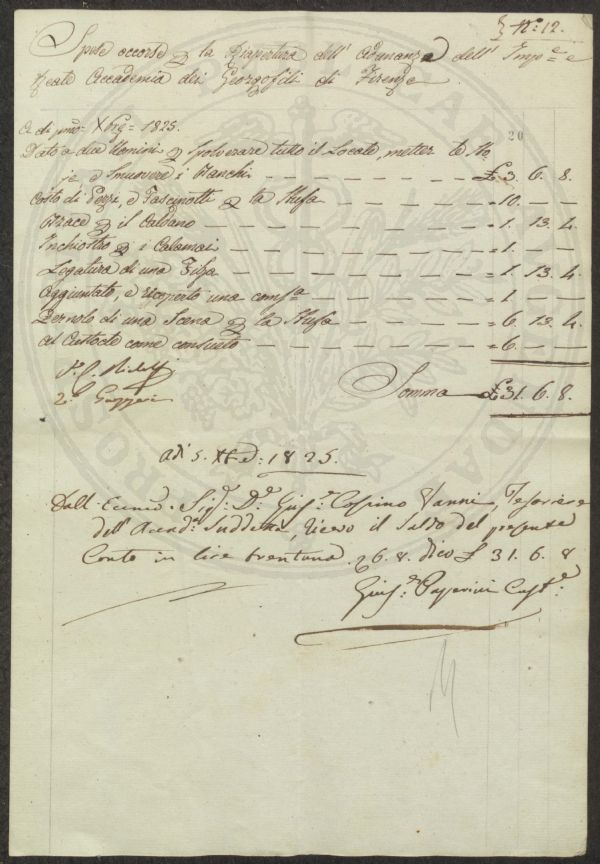 § N.° 12.
Spese occorse p la Riapertura dell' Adunanze dell' Imp.e e
Reale Accademia dei Georgofili di Firenze
20
A di pmo Xbre 1825.
Dato a due Uomini p spolverare tutto il Locale, metter le
e Smuovere i Banchi — £ 3. 6. 8.
Costo di Pezzi, e Fascinotti p la Stufa — " 10. —
Brace p il Caldano — " 1. 13. 4.
Inchiostro p i Calamai — " 1. —
Legatura di una Filza — " 1. 13. 4.
Aggiuntato, e ricoperto una — " 1. —
Pernolo di una Scena p la Stufa — " 6. 13. 4.
Al Custode come consueto — " 6. —
Somma £ 31. 6. 8.
C. Ridolfi
2.° Gazzeri
adi 5. Xbre: 1825.
Dall' Eccmo. Sig.r D.r Gius.e Cosimo Vanni, Tesoriere
dell' Accad.a Suddetta, ricevo il Saldo del presente
Conto in lire trentuna. 6. 8. dico £ 31. 6. 8
Gius.e Paperini Cust.e